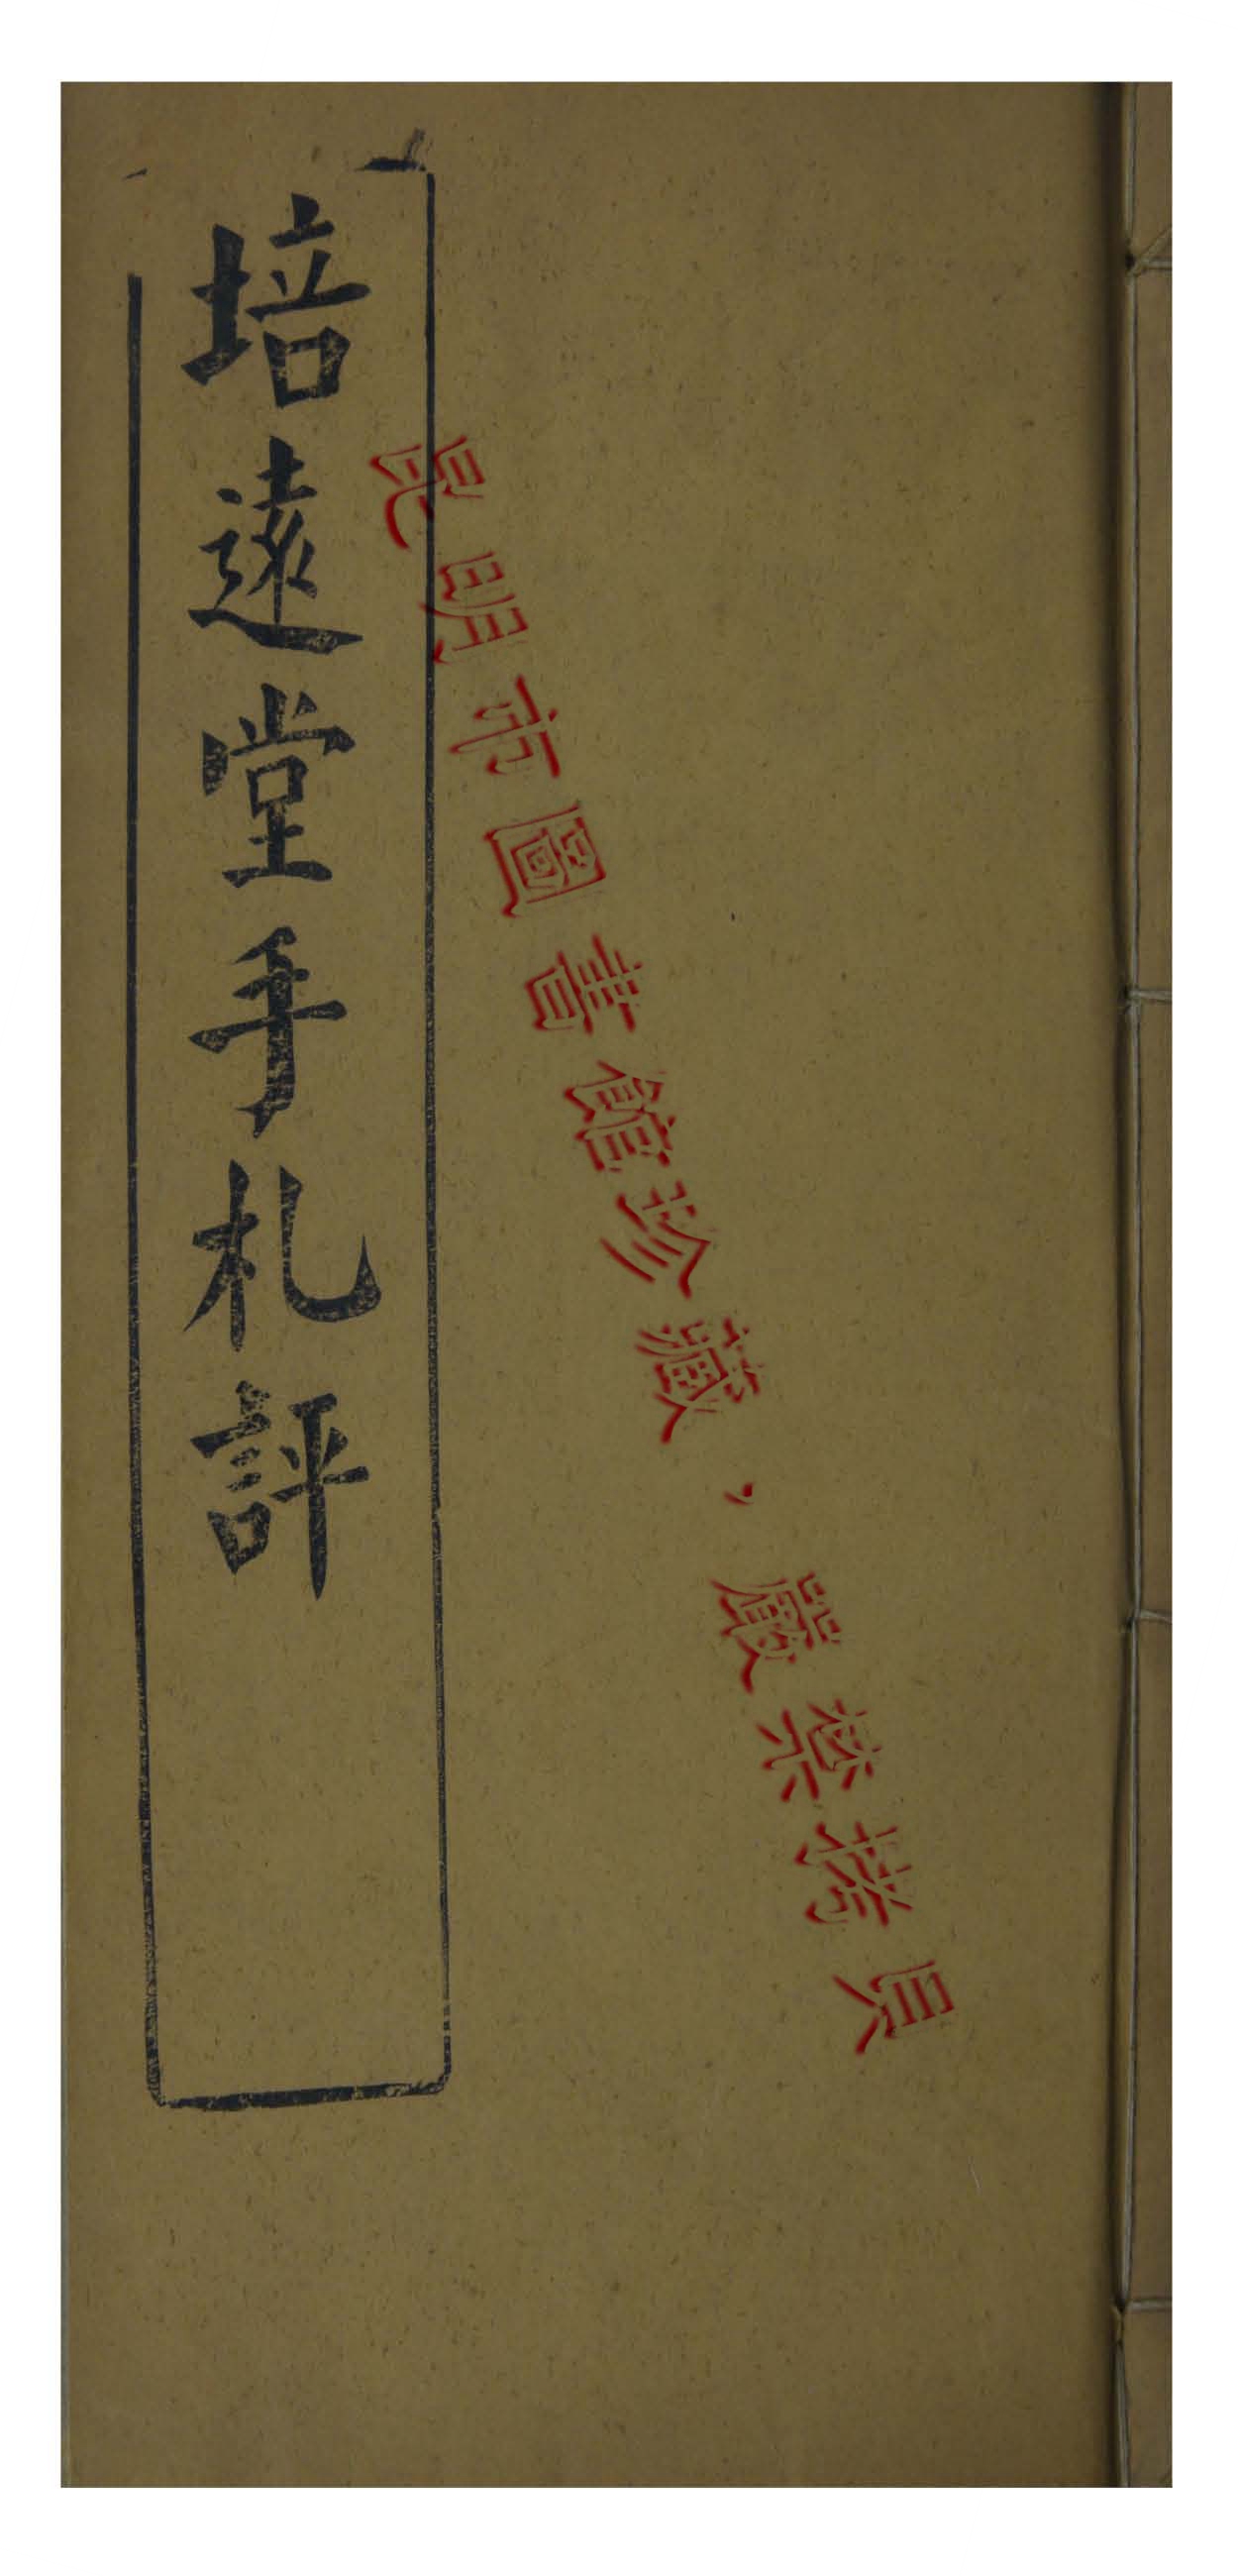 培遠堂手札評
昆明市圖書館珍藏，嚴禁拷貝